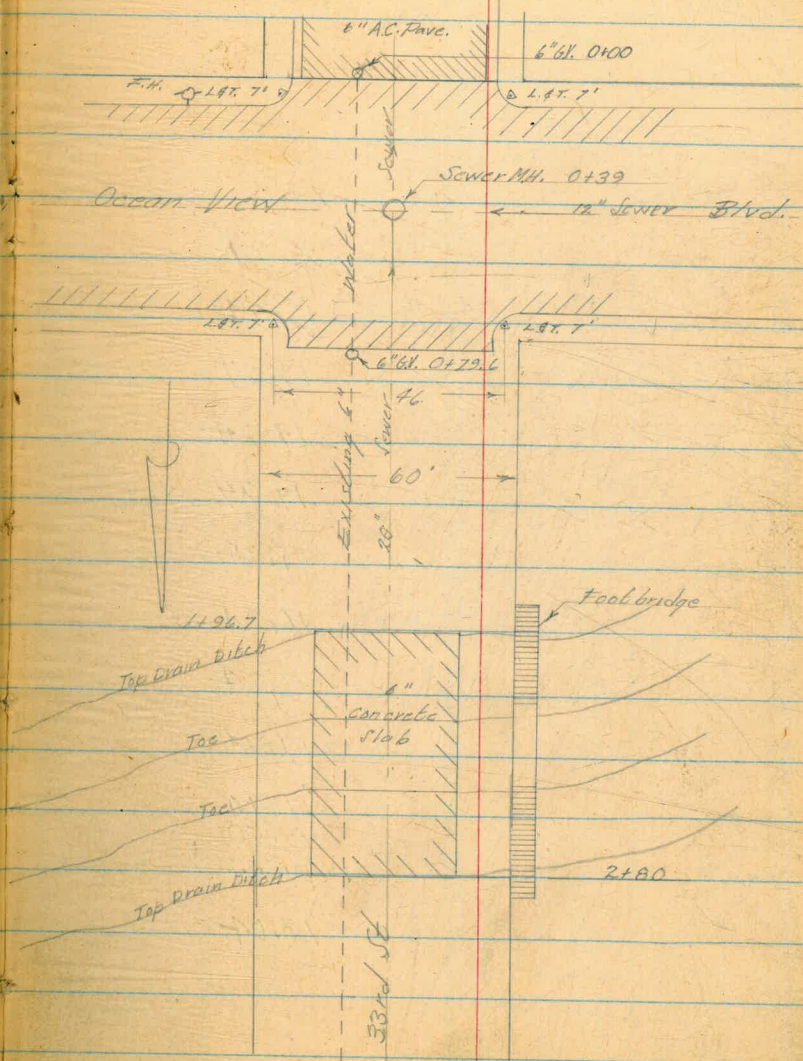 6" A.C. Pave.
6" G.V. 0+00
F.H.
L&T. 7'
L&T. 7'
Sewer
Sewer M.H. 0+39
Ocean View
12" Sewer Blvd.
Water
L&T. 7'
L&T. 7'
6" G.V. 0+79.6
46
Sewer
Existing 6"
60'
Footbridge
1+96.7
Top Drain Ditch
6"
Concrete
Slab
Toe
Toe
2+80
Top Drain Ditch
33rd St